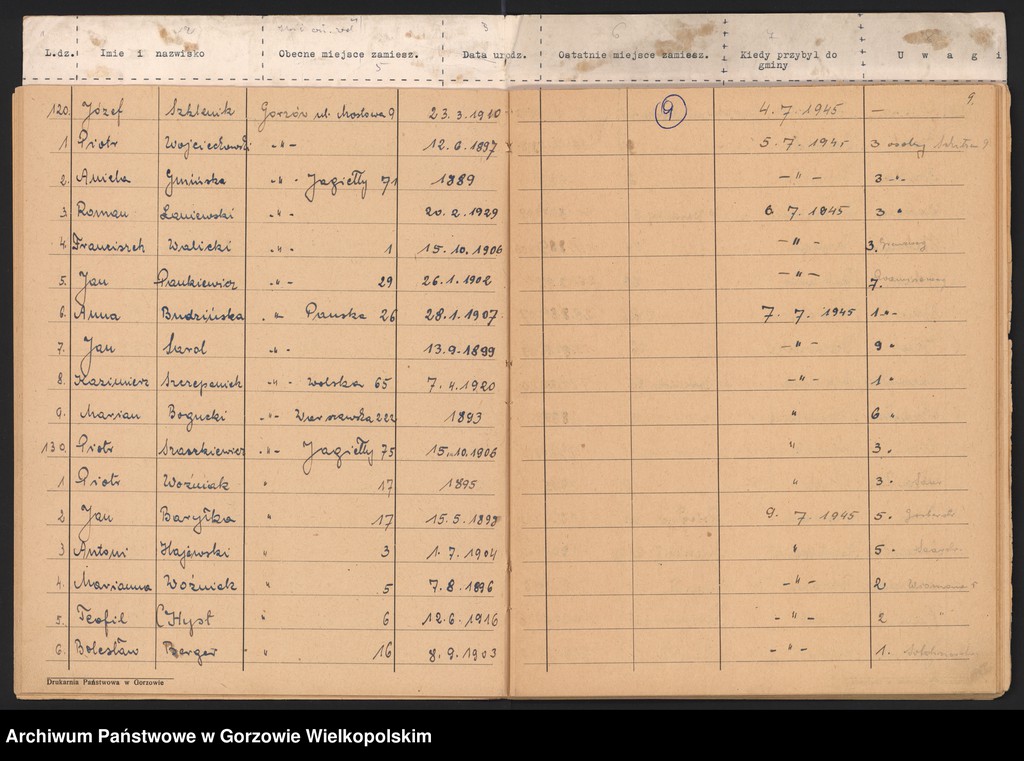 L.dz. Imie i nazwisko Obecne miejsce zamiesz. Data urodz. Ostatnie miejsce zamiesz. Kiedy przybył do gminy U w a g i
9.
120. Józef Szklenik Gorzów ul. Mostowa 9 23.3.1910 9 4.7.1945 —
1 Piotr Wojciechowski -"- 12.6.1897 5.7.1945 3 osoby
2. Aniela Gmińska -"- Jagiełły 71 1889 -"- 3 -"-
3. Roman Łaniewski -"- 20.2.1929 6.7.1945 3 "
4. Franciszek Walicki -"- 1 15.10.1906 -"- 3.
5. Jan Pankiewicz -"- 29 26.1.1902 -"- 7.
6. Anna Budzińska -"- Panska 26 28.1.1907 7.7.1945 1 -"-
7. Jan Sarol -"- 13.9.1899 -"- 9 "
8. Kazimierz Szczepaniek -"- Wolska 65 7.4.1920 -"- 1 "
9. Marian Bogucki -"- Warszawska 222 1893 " 6 "
130. Piotr Staszkiewicz -"- Jagiełły 75 15.10.1906 " 3.
1 Piotr Woźniak " 17 1895 " 3.
2 Jan Baryłka " 17 15.5.1898 9.7.1945 5.
3 Antoni Hajewski " 3 1.7.1904 " 5.
4. Marianna Woźniak " 5 7.8.1896 -"- 2
5. Teofil Hyst " 6 12.6.1916 -"- 2 "
6. Bolesław Berger " 16 8.9.1903 -"- 1.
Drukarnia Państwowa w Gorzowie
Archiwum Państwowe w Gorzowie Wielkopolskim